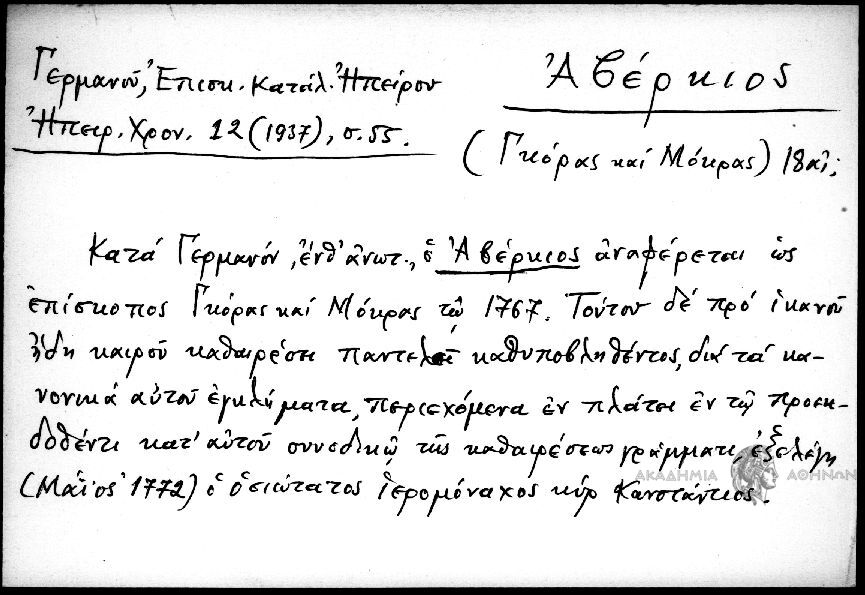 Γερμανοῦ, Ἐπισκ. Κατάλ. Ἠπείρου
Ἠπειρ. Χρον. 12 (1937), σ. 55.
Ἀβέρκιος
(Γκόρας καί Μόκρας) 18 αἰ;
Κατά Γερμανόν, ἔνθ' ἀνωτ., ὁ Ἀβέρκιος ἀναφέρεται ὡς
ἐπίσκοπος Γκόρας καί Μόκρας τῷ 1767. Τούτου δέ πρό ἱκανοῦ
ἤδη καιροῦ καθαιρέσει παντελεῖ καθυποβληθέντος, διά τά κα-
νονικά αὐτοῦ ἐγκλήματα, περιεχόμενα ἐν πλάτει ἐν τῷ προεκ-
δοθέντι κατ' αὐτοῦ συνοδικῷ τῆς καθαιρέσεως γράμματι, ἐξελέγη
(Μάϊος 1772) ὁ ὁσιώτατος ἱερομόναχος κύρ Κωνστάντιος.
ΑΚΑΔΗΜΙΑ ΑΘΗΝΩΝ